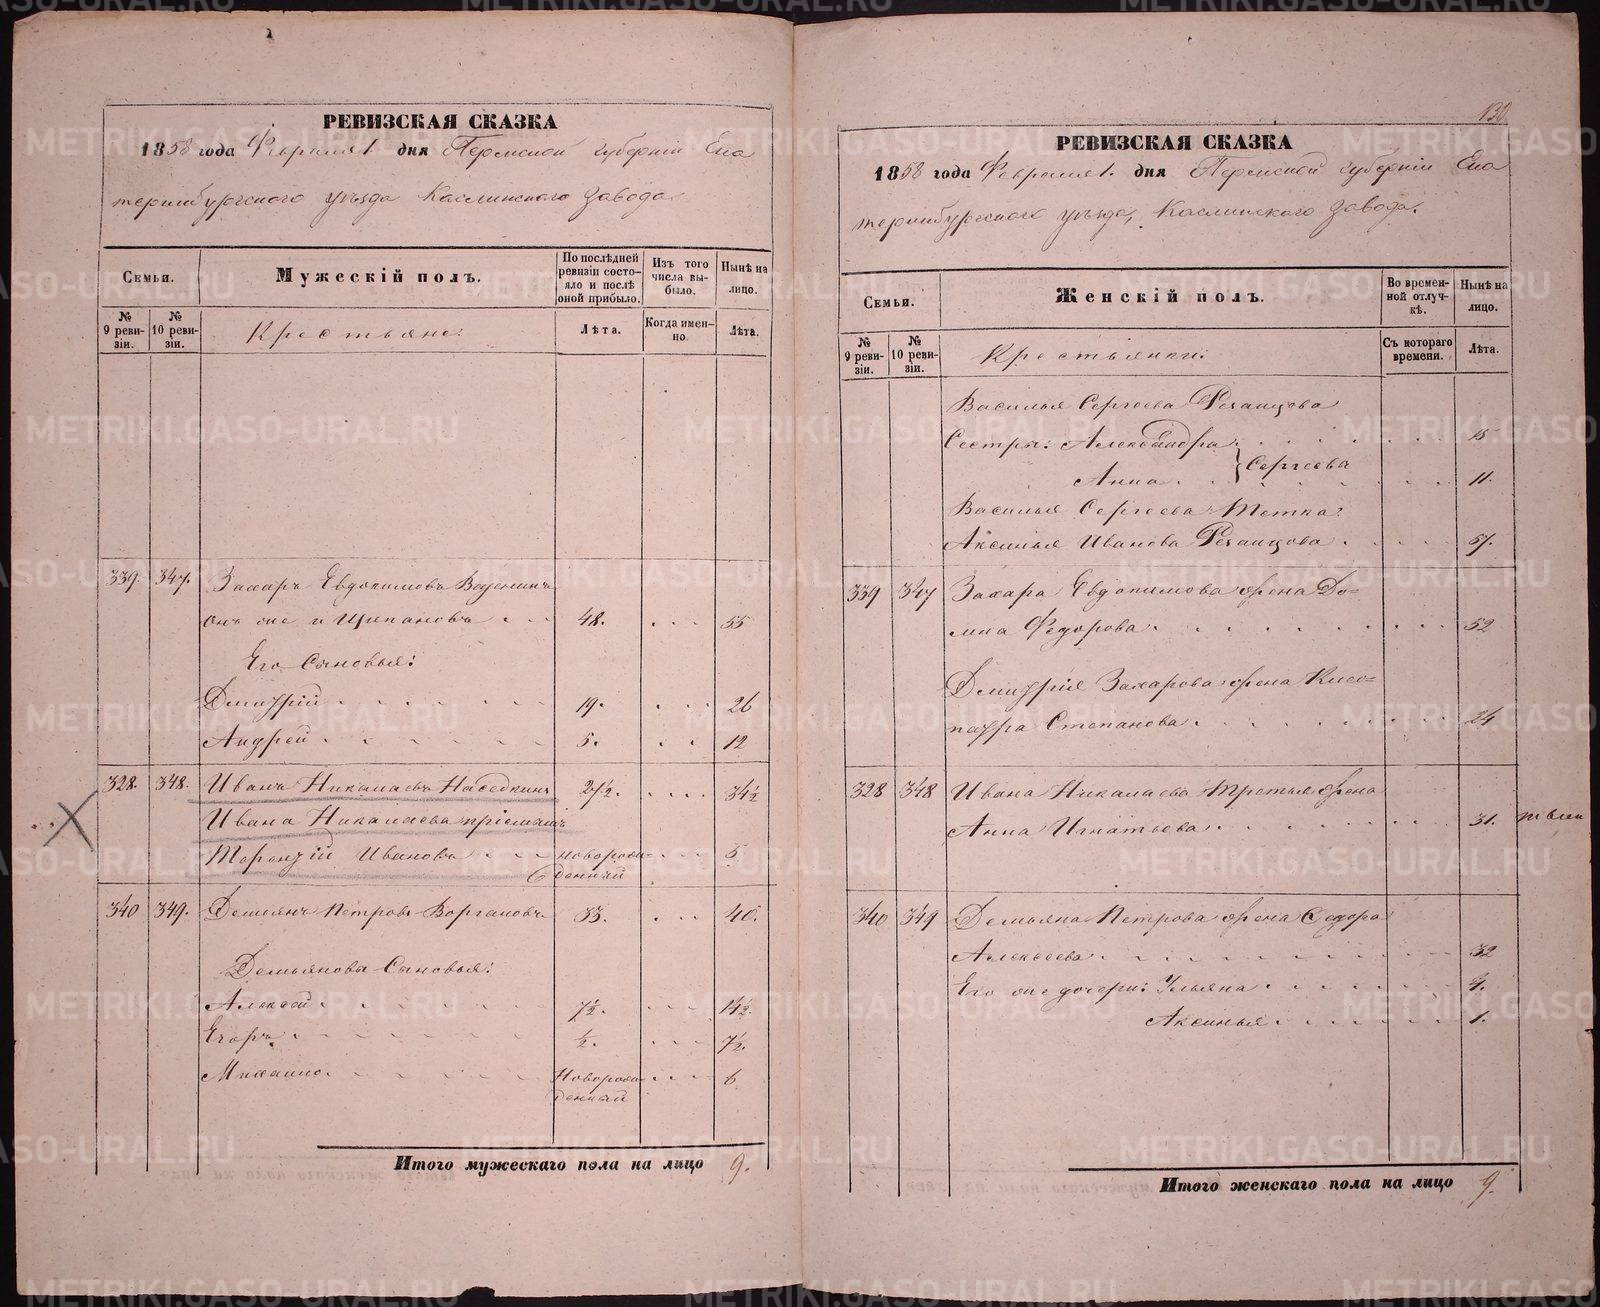 РЕВИЗСКАЯ СКАЗКА
1858 года Февраля 1. дня Пермской губерніи Ека
теринбургского уѣзда Каслинского завода.
Семьи.
Мужескій полъ.
По послѣдней ревизіи состояло и послѣ оной прибыло.
Изъ того числа выбыло.
Нынѣ на лицо.
№ 9 ревизіи.
№ 10 ревизіи.
Крестьяне:
Лѣта.
Когда именно.
Лѣта.
339. 347. Захаръ Евдокимовъ
онъ же и . . . 48. . . . 55
Его Сыновья:
Дмитрій . . . . . . 19. . . . 26
Андрей . . . . . . 5. . . 12
328. 348. Иванъ Николаевъ Наседкинъ 27½. . . . . 34½
Ивана Николаева пріемышъ
Терентій Ивановъ . . . новорож- . . . 5
денный
340 349. Демьянъ Петровъ 33. . . . 40.
Демьянова Сыновья:
Алексей . . . . . . 7½. . . . 14½.
Егоръ . . . . . . ½. . . . 7½.
Михаило . . . . . Новорож- . . . 6
денный
Итого мужескаго пола на лицо 9.
130
РЕВИЗСКАЯ СКАЗКА
1858 года Февраля 1. дня Пермской губерніи Ека
теринбургского уѣзда, Каслинского завода.
Семьи.
Женскій полъ.
Во временной отлучкѣ.
Нынѣ на лицо.
№ 9 ревизіи.
№ 10 ревизіи.
Крестьянки:
Съ котораго времени.
Лѣта.
Василья Сергеева
Сестры: Александра . . . . . . 15
Сергеева
Анна . . . . . . 11.
Василья Сергеева тетка:
Аксинья Иванова . . . . 57.
339 347 Захара Евдокимова жена До-
мна Федорова . . . . . . . 52
Дмитрія Захарова жена Клео-
патра Степанова . . . . . . . 24
328 348 Ивана Николаева третья жена
Анна Игнатьева . . . . . . . 31.
340 349 Демьяна Петрова жена Федора
Алексеева . . . . . . . 32
Его же дочери: Ульяна . . . . . . 9.
Аксинья . . . . . . 1.
Итого женскаго пола на лицо 9.
METRIKI.GASO-URAL.RU